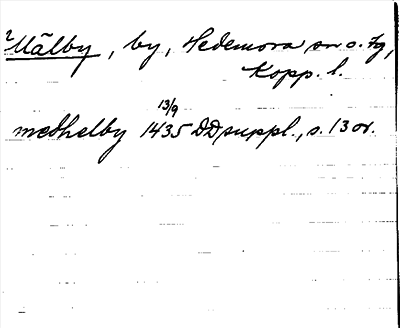 Mälby, by, Hedemora sn o. tg,
Kopp. l.
13/9
medhelby 1435 DD suppl., s. 13 or.